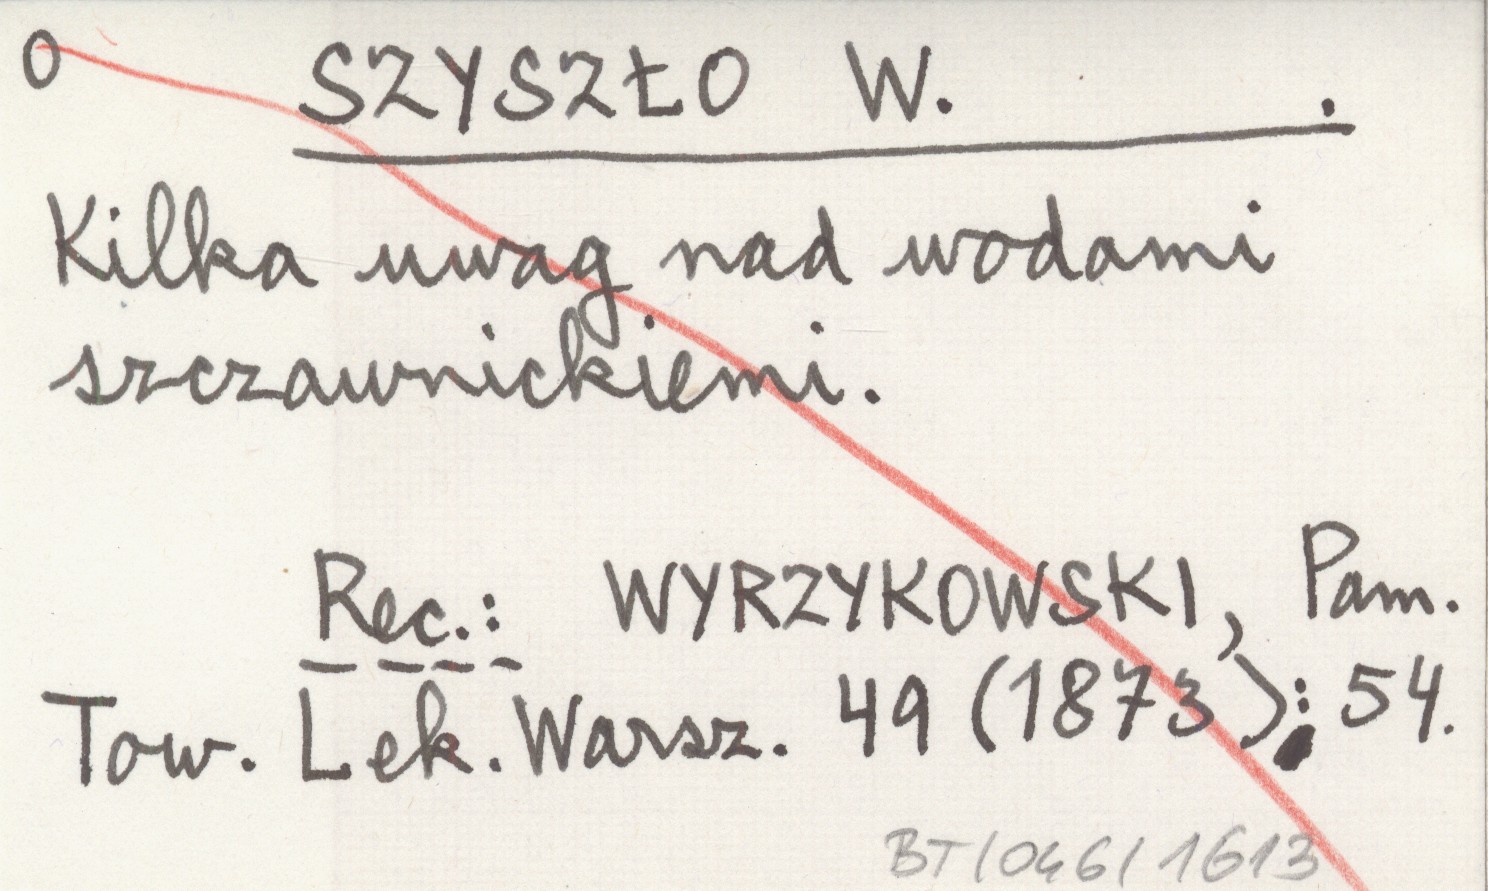 O SZYSZŁO W. .
Kilka uwag nad wodami
szczawnickiemi.
Rec.: WYRZYKOWSKI, Pam.
Tow. Lek. Warsz. 49 (1873): 54.
BT/046/1613